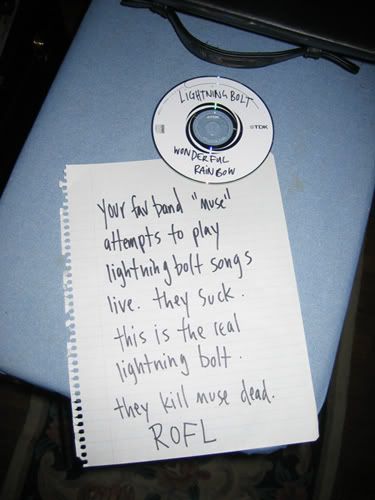 LIGHTNING BOLT
TDK
TDK
WONDERFUL
RAINBOW
your fav band "muse"
attempts to play
lightning bolt songs
live. they suck.
this is the real
lightning bolt.
they kill muse dead.
ROFL